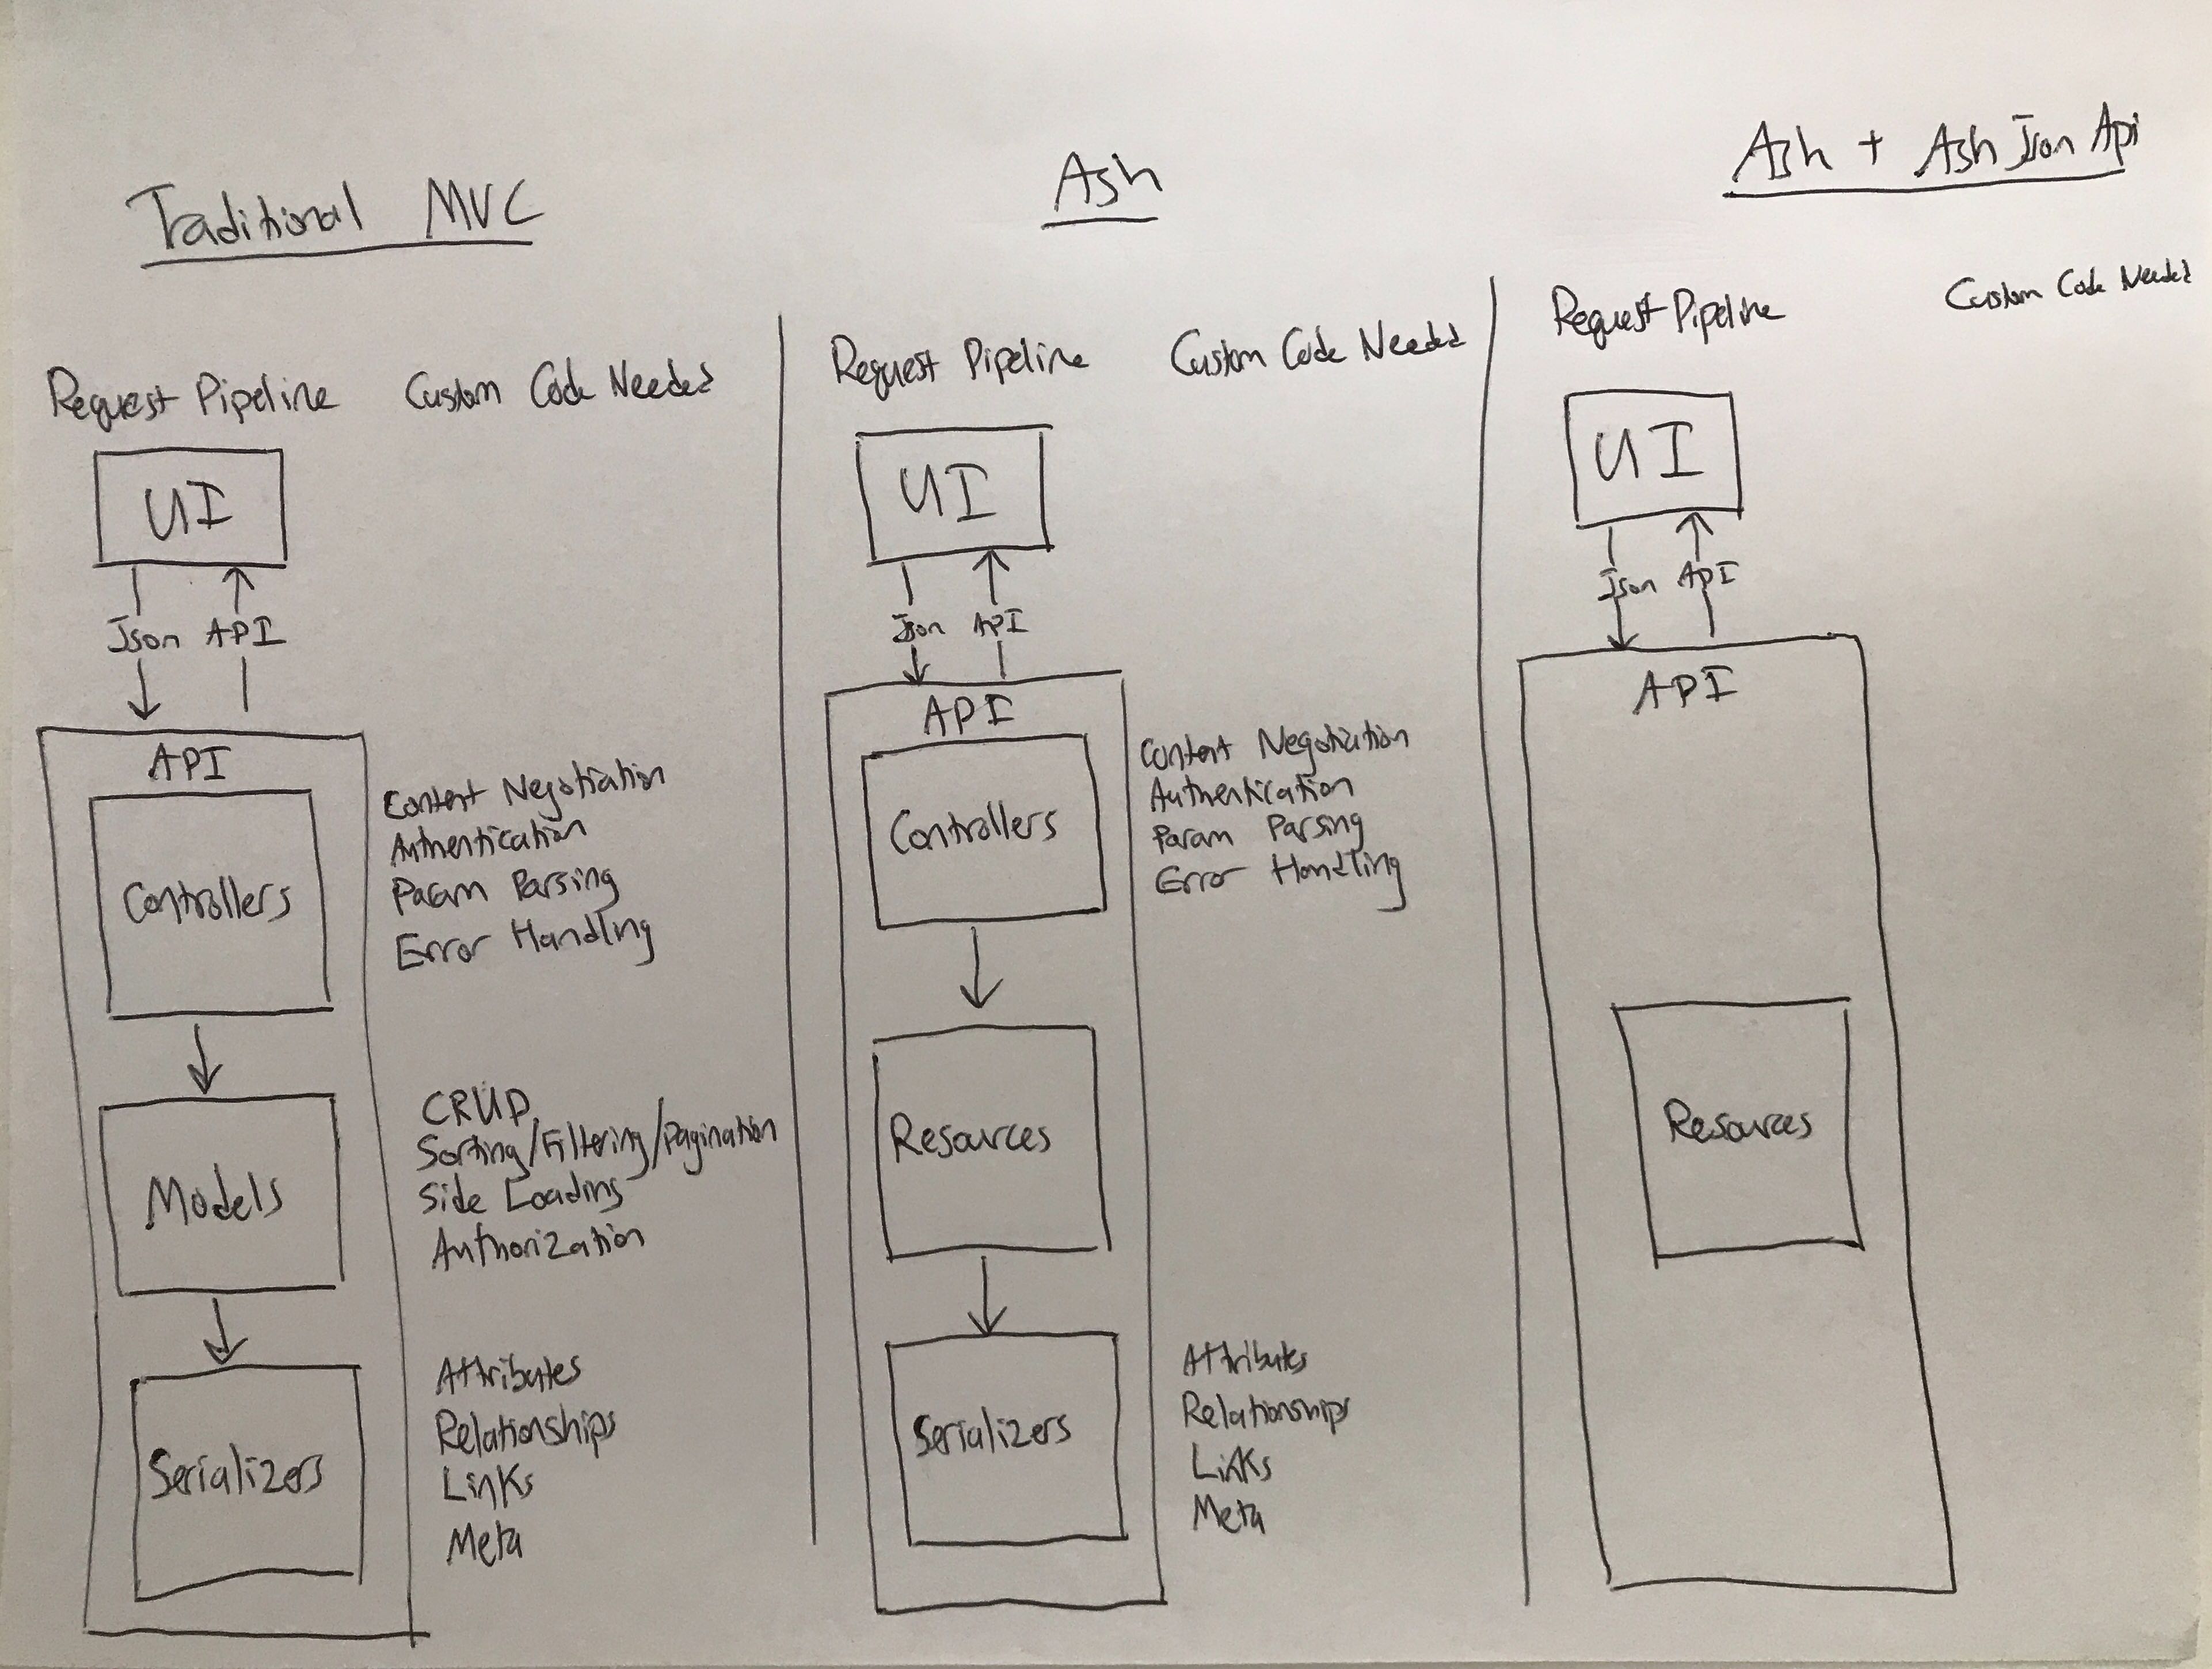 Traditional MVC
Request Pipeline
Custom Code Needed
UI
Json API
API
Controllers
Content Negotiation
Authentication
Param Parsing
Error Handling
Models
CRUD
Sorting/Filtering/Pagination
Side Loading
Authorization
Serializers
Attributes
Relationships
Links
Meta
Ash
Request Pipeline
Custom Code Needed
UI
Json API
API
Controllers
Content Negotiation
Authentication
Param Parsing
Error Handling
Resources
Serializers
Attributes
Relationships
Links
Meta
Ash + Ash Json Api
Request Pipeline
Custom Code Needed
UI
Json API
API
Resources